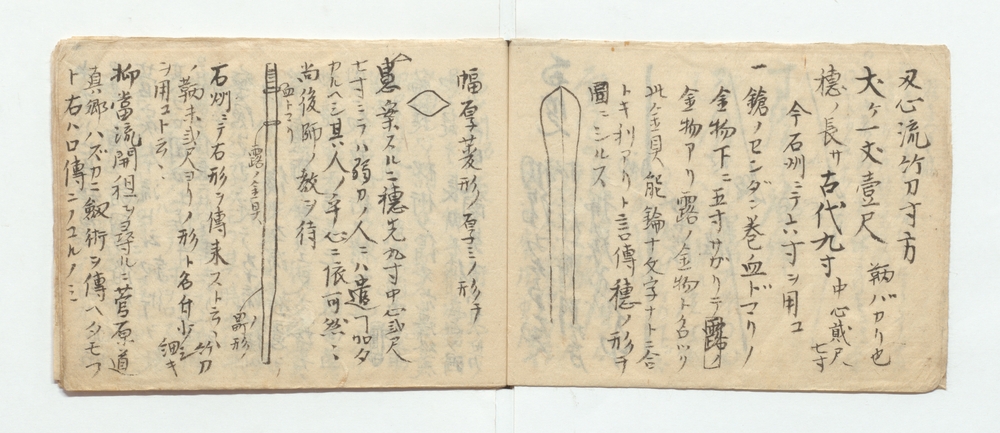 刄心流竹刀寸方
大ケ一丈壹尺 鞆バカリ也
穂ノ長サ古代九寸 中心貮尺七寸
今石州ニテ六寸ヲ用ユ
一鎗ノセンダン巻血ドマリノ
金物下ニ五寸サガリテ露ノ
金物アリ露ノ金物ト名ツク
此ノ金具能鎗十文字ナトニ合
トキ利アリト言傳穂ノ形チ
圖ニシルス
幅厚菱形ノ厚ミノ形チ
愚案スルニ穂先九寸中心貮尺
七寸ニテハ弱力ノ人ニハ遣フ加タ
カルヘシ其人ノ手心ニ依可然
尚後師ノ教ヲ待
血トマリ
露ノ金具
石州ニテ右形ヲ傳来ストモ云竹刀
ノ鞆末貮尺ヨリノ形ト名付少シ細キ
ヲ用ユト云
抑當流開祖ヲ尋ルニ菅原道
真郷ハズカニ劔術ヲ傳ヘタモフ
ト右ハ口傳ニノコルノミ